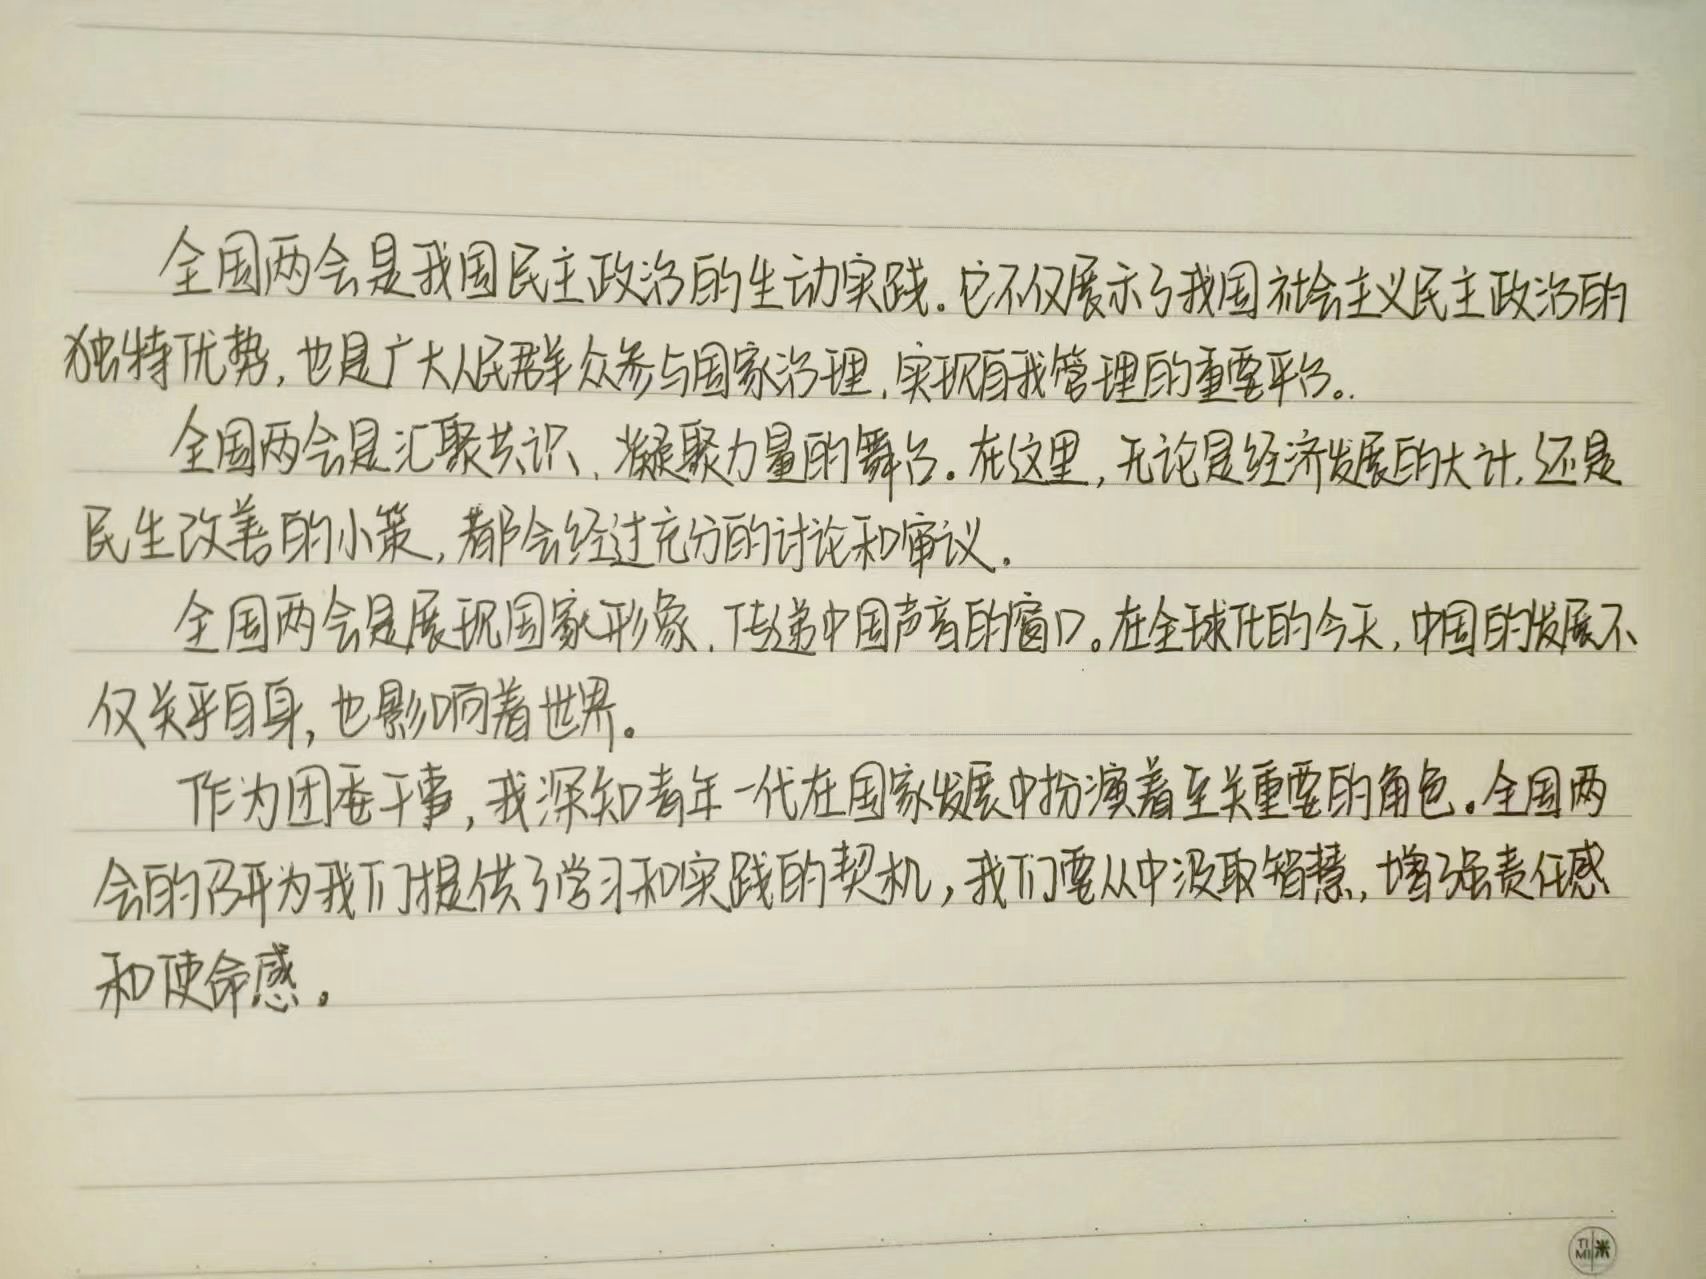 全国两会是我国民主政治的生动实践。它不仅展示了我国社会主义民主政治的
独特优势，也是广大人民群众参与国家治理，实现自我管理的重要平台。
全国两会是汇聚共识、凝聚力量的舞台。在这里，无论是经济发展的大计，还是
民生改善的小策，都会经过充分的讨论和审议。
全国两会是展现国家形象，传递中国声音的窗口。在全球化的今天，中国的发展不
仅关乎自身，也影响着世界。
作为团委干事，我深知青年一代在国家发展中扮演着至关重要的角色。全国两
会的召开为我们提供了学习和实践的契机，我们要从中汲取智慧，增强责任感
和使命感。
TI
MI 米